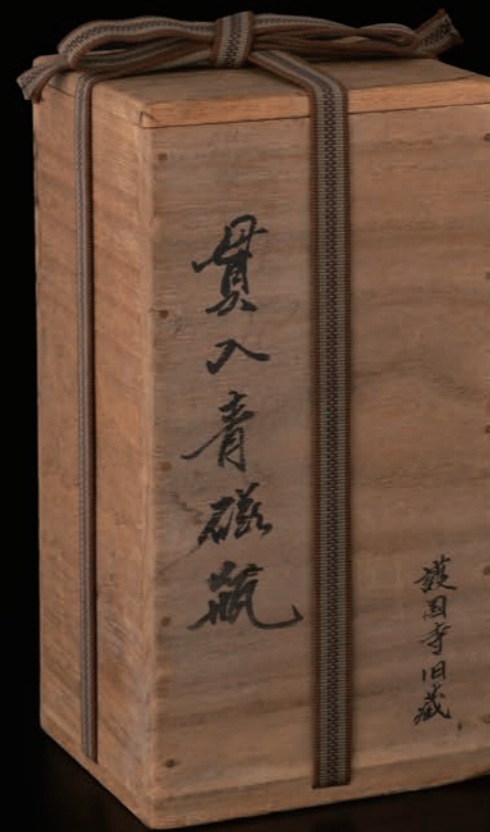 貫入青磁瓶
護国寺旧蔵